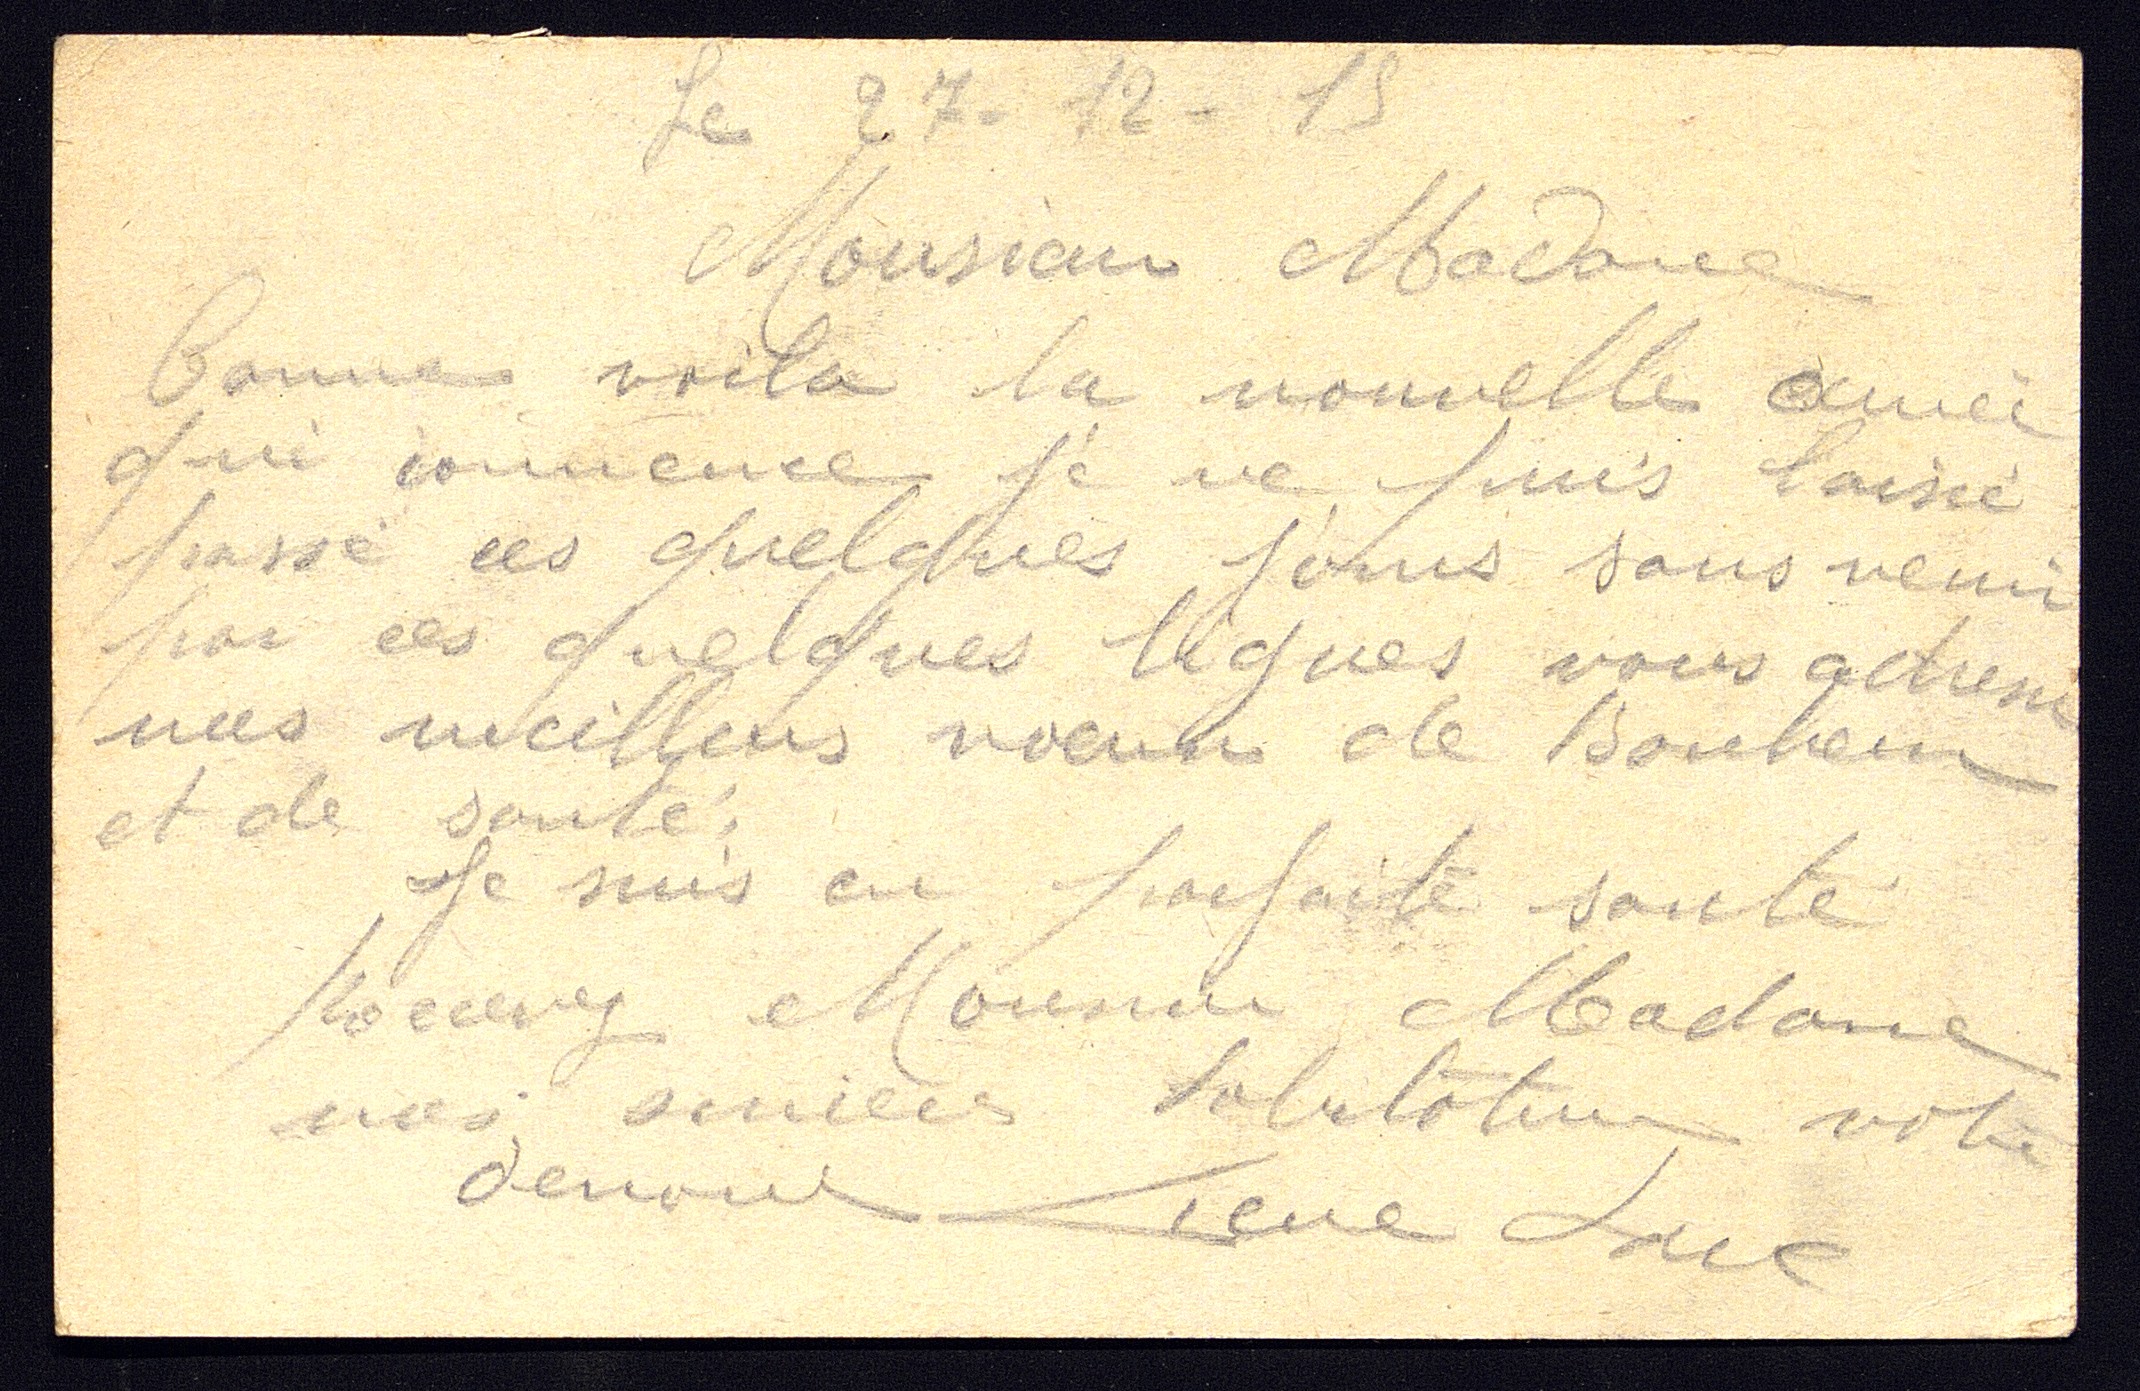 Le 27-12-15
Monsieur Madame
Comme voila la nouvelle année
qui commence je ne puis laissé
passé ces quelques jours sans venir
par ces quelques lignes vous adresser
mes meilleurs voeux de Bonheur
et de santé.
Je suis en parfaite santé
Recevez Monsieur Madame
mes sincères salutations votre
dévoué